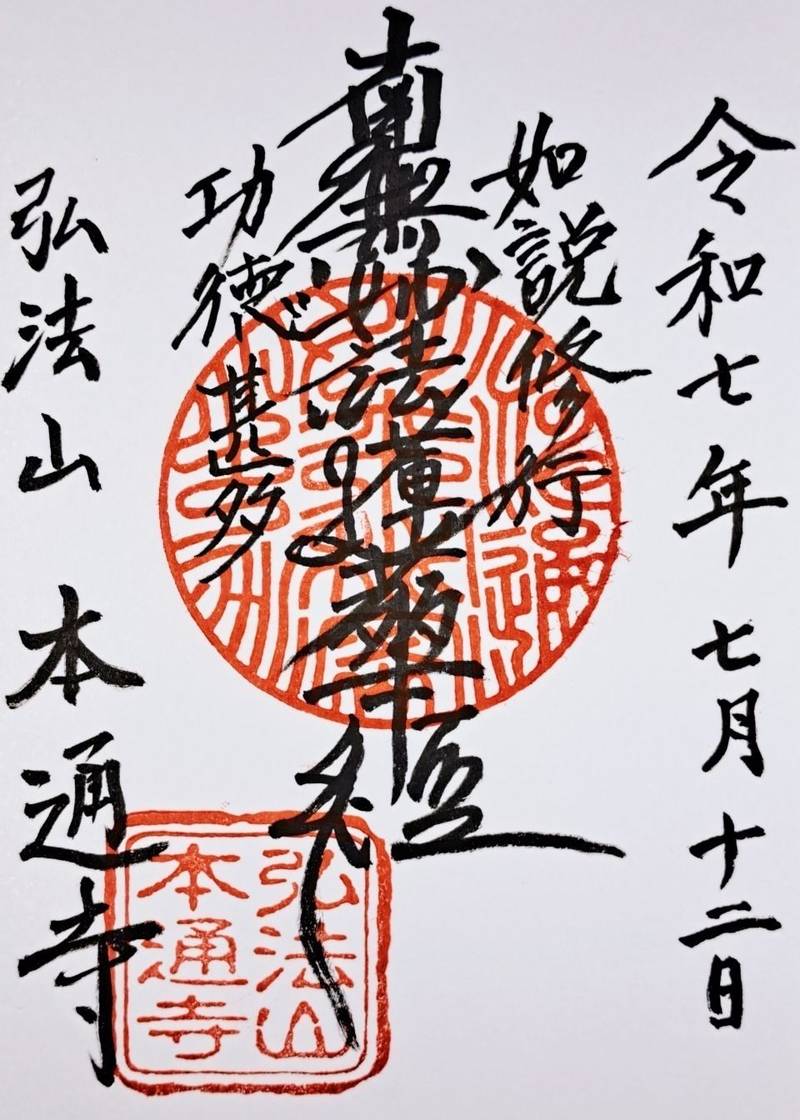 令和七年七月十二日
如説修行
南無妙法蓮華経
功徳甚多
弘法山 本通寺
弘法山
本通寺